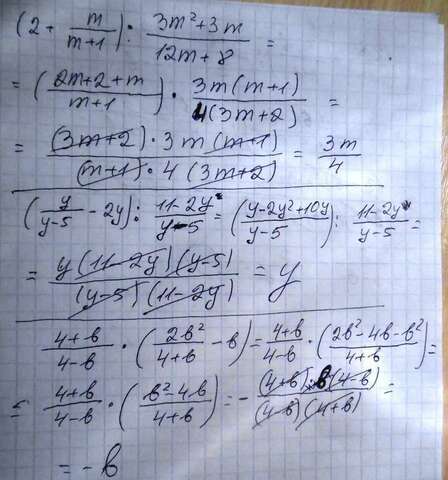 (2 + m/(m+1)) : (3m²+3m)/(12m+8) =
= ((2m+2+m)/(m+1)) · (3m(m+1))/(4(3m+2)) =
= ((3m+2) · 3m(m+1))/((m+1) · 4(3m+2)) = 3m/4
(y/(y-5) - 2y) : (11-2y)/(y-5) = ((y-2y²+10y)/(y-5)) : (11-2y)/(y-5) =
= (y(11-2y)(y-5))/((y-5)(11-2y)) = y
(4+b)/(4-b) · (2b²/(4+b) - b) = (4+b)/(4-b) · ((2b²-4b-b²)/(4+b)) =
= (4+b)/(4-b) · ((b²-4b)/(4+b)) = - ((4+b) · b(4-b))/((4-b)(4+b)) =
= - b